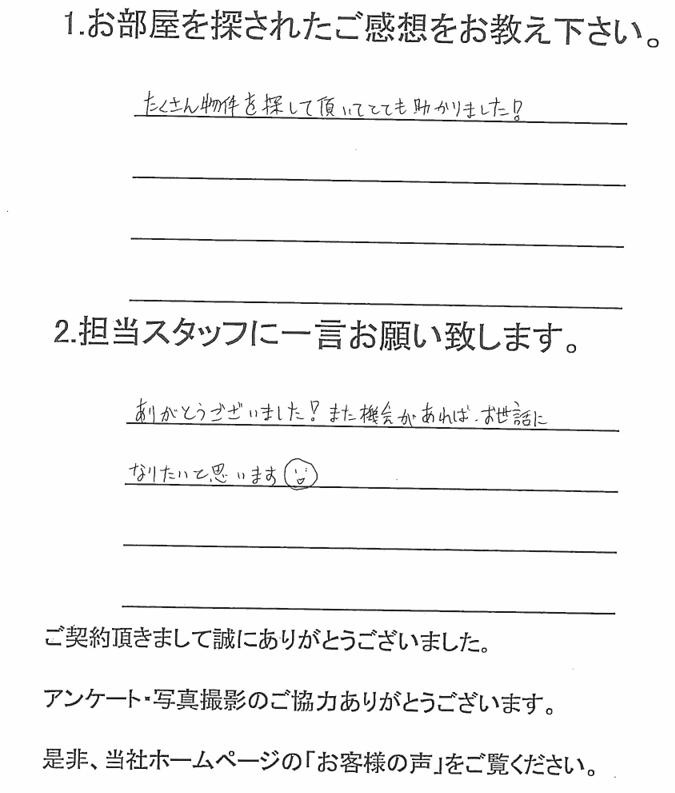 1.お部屋を探されたご感想をお教え下さい。
たくさん物件を探して頂いてとても助かりました!
2.担当スタッフに一言お願い致します。
ありがとうございました!また機会があれば、お世話に
なりたいと思います
ご契約頂きまして誠にありがとうございました。
アンケート・写真撮影のご協力ありがとうございます。
是非、当社ホームページの「お客様の声」をご覧ください。